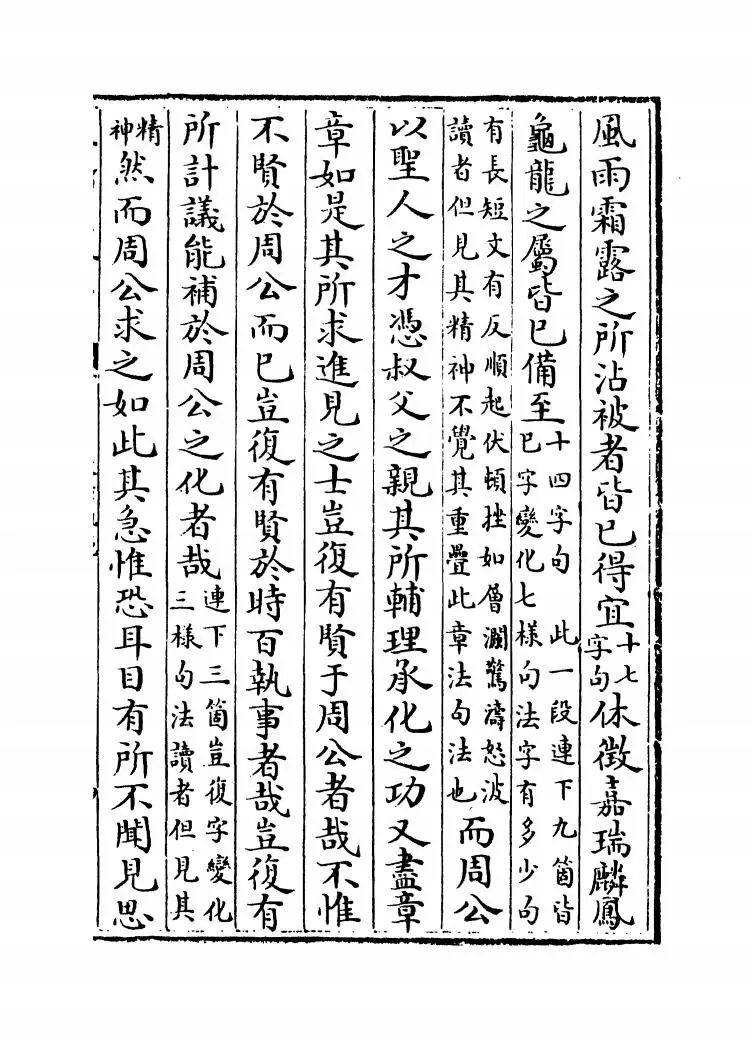 風雨霜露之所沾被者皆已得宜十七字句休徵嘉瑞麟鳳
龜龍之屬皆已備至十四字句　此一段連下九箇皆已字變化七樣句法字有多少句
有長短文有反順起伏頓挫如層瀾驚濤怒波讀者但見其精神不覺其重疊此章法句法也而周公
以聖人之才憑叔父之親其所輔理承化之功又盡章
章如是其所求進見之士豈復有賢于周公者哉不惟
不賢於周公而已豈復有賢於時百執事者哉豈復有
所計議能補於周公之化者哉連下三箇豈復字變化三樣句法讀者但見其
精神然而周公求之如此其急惟恐耳目有所不聞見思